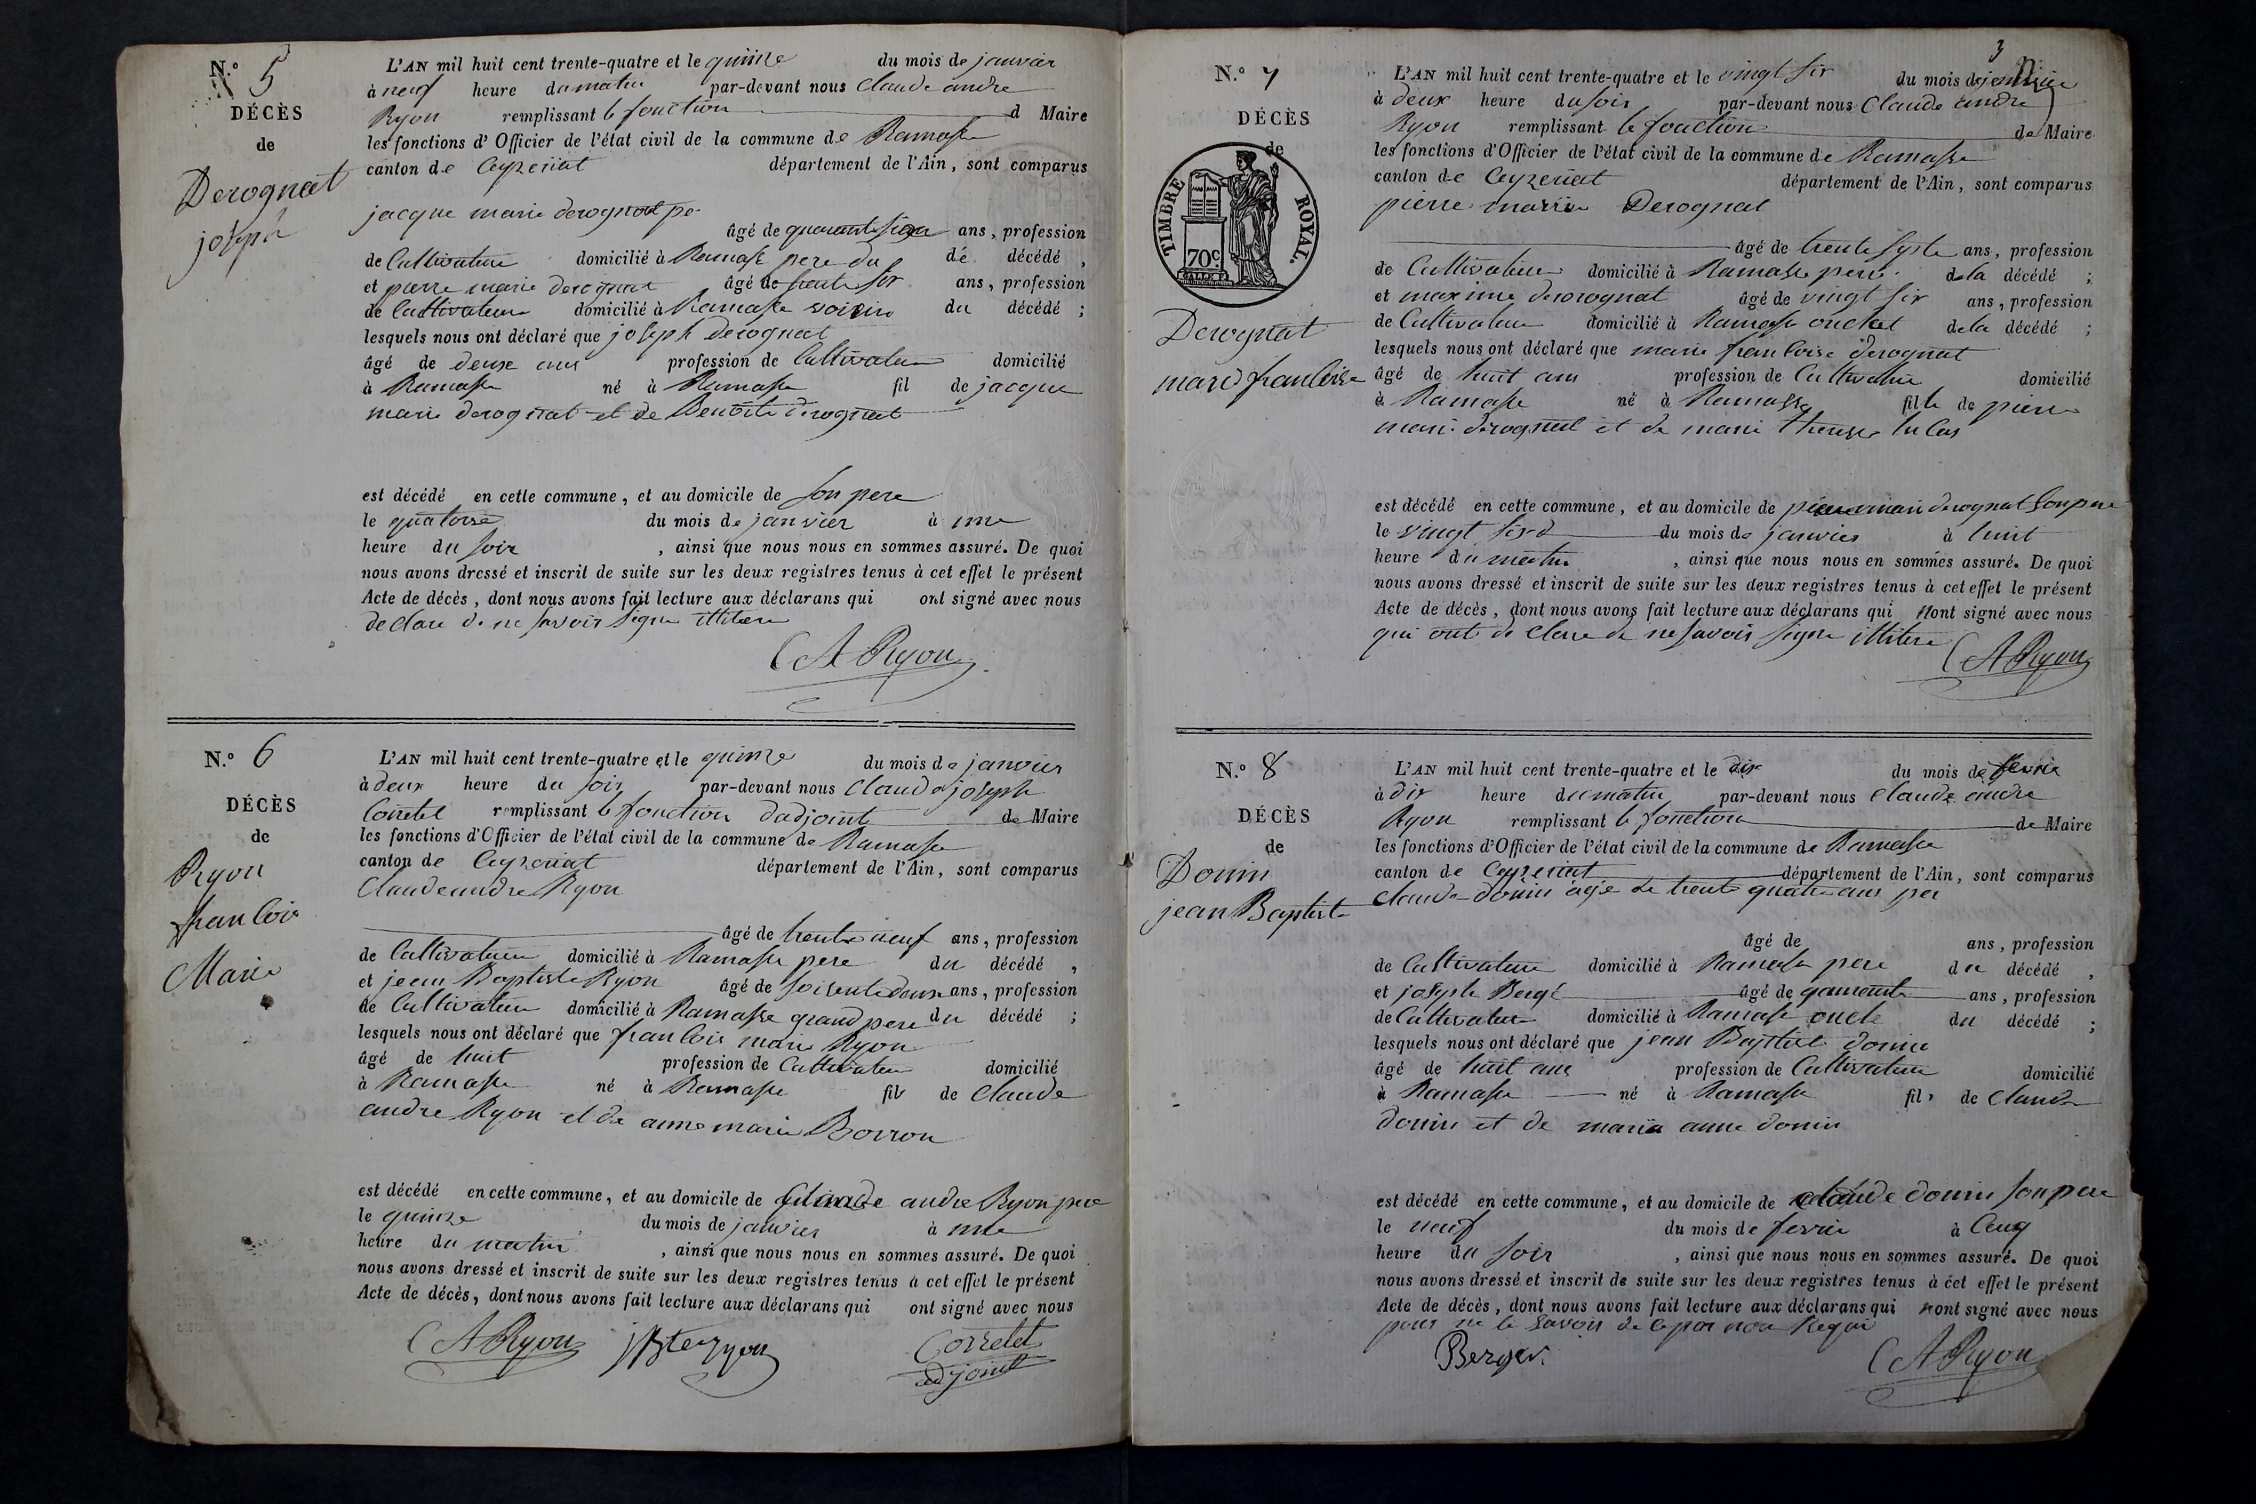 N.° 5
DÉCÈS
de
Derognat
joseph
L'AN mil huit cent trente-quatre et le quinze du mois de janvier
à neuf heure du matin par-devant nous Claude andre
Ryon remplissant le fonction d Maire
les fonctions d'Officier de l'état civil de la commune de Ramasse
canton de Ceyzeriat département de l'Ain, sont comparus
jacque marie derognat
âgé de ans, profession
de Cultivateur domicilié à Ramasse pere du dé décédé,
et pierre marie derognat âgé de trente six ans, profession
de Cultivateur domicilié à Ramasse voisin du décédé;
lesquels nous ont déclaré que joseph derognat
âgé de deuze ans profession de Cultivateur domicilié
à Ramasse né à Ramasse fil de jacque
marie derognat et de Benoite derognat
est décédé en cette commune, et au domicile de son pere
le quatorze du mois de janvier à une
heure du soir, ainsi que nous nous en sommes assuré. De quoi
nous avons dressé et inscrit de suite sur les deux registres tenus à cet effet le présent
Acte de décès, dont nous avons fait lecture aux déclarans qui ont signé avec nous
declare de ne savoir signe illitere
CA Ryon
N.° 6
DÉCÈS
de
Ryon
francois
Marie
L'AN mil huit cent trente-quatre et le quinze du mois de janvier
à deux heure du soir par-devant nous Claude joseph
Corretel remplissant le fonction dadjoint de Maire
les fonctions d'Officier de l'état civil de la commune de Ramasse
canton de Ceyzeriat département de l'Ain, sont comparus
Claude andre Ryon
âgé de trente neuf ans, profession
de Cultivateur domicilié à Ramasse pere du décédé,
et jean Baptiste Ryon âgé de soisente douse ans, profession
de Cultivateur domicilié à Ramasse grand pere du décédé;
lesquels nous ont déclaré que francois marie Ryon
âgé de huit profession de Cultivateur domicilié
à Ramasse né à Ramasse fils de Claude
andre Ryon et de anne marie Borron
est décédé en cette commune, et au domicile de Claude andre Ryon pere
le quinze du mois de janvier à une
heure du matin, ainsi que nous nous en sommes assuré. De quoi
nous avons dressé et inscrit de suite sur les deux registres tenus à cet effet le présent
Acte de décès, dont nous avons fait lecture aux déclarans qui ont signé avec nous
CA Ryon jBte ryon Corretel
adjoint
3
N.° 7
DÉCÈS
de
TIMBRE ROYAL.
70c
Derognat
marie francoise
L'AN mil huit cent trente-quatre et le vingt six du mois de janvier
à deux heure du soir par-devant nous Claude andre
Ryon remplissant le fonction de Maire
les fonctions d'Officier de l'état civil de la commune de Ramasse
canton de Ceyzeriat département de l'Ain, sont comparus
pierre marie Derognat
âgé de trente ans, profession
de Cultivateur domicilié à Ramasse pere de la décédé;
et maxime derorognat âgé de vingt six ans, profession
de Cultivateur domicilié à Ramasse de la décédé;
lesquels nous ont déclaré que marie francoise derognat
âgé de huit ans profession de Cultivateur domicilié
à Ramasse né à Ramasse fille de pierre
marie derognat et de marie therese lucas
est décédé en cette commune, et au domicile de pierre marie derognat son pere
le vingt six du mois de janvier à huit
heure du matin, ainsi que nous nous en sommes assuré. De quoi
nous avons dressé et inscrit de suite sur les deux registres tenus à cet effet le présent
Acte de décès, dont nous avons fait lecture aux déclarans qui nont signé avec nous
qui ont de clare de ne savoir signe illitere
CA Ryon
N.° 8
DÉCÈS
de
Donin
jean Baptiste
L'AN mil huit cent trente-quatre et le dix du mois de fevrie
à dix heure du matin par-devant nous Claude andre
Ryon remplissant le fonction de Maire
les fonctions d'Officier de l'état civil de la commune de Ramasse
canton de Ceyzeriat département de l'Ain, sont comparus
claude donin agé de trente quatre ans per
âgé de ans, profession
de Cultivateur domicilié à Ramasse pere du décédé,
et joseph Bergé âgé de ans, profession
de Cultivateur domicilié à Ramasse oncle du décédé;
lesquels nous ont déclaré que jean Baptiste donin
âgé de huit ans profession de Cultivateur domicilié
à Ramasse né à Ramasse fils de Claude
donin et de maria anne donin
est décédé en cette commune, et au domicile de claude donin son pere
le neuf du mois de fevrie à Cinq
heure du soir, ainsi que nous nous en sommes assuré. De quoi
nous avons dressé et inscrit de suite sur les deux registres tenus à cet effet le présent
Acte de décès, dont nous avons fait lecture aux déclarans qui nont signé avec nous
pour ne le savoir de
Berger CA Ryon